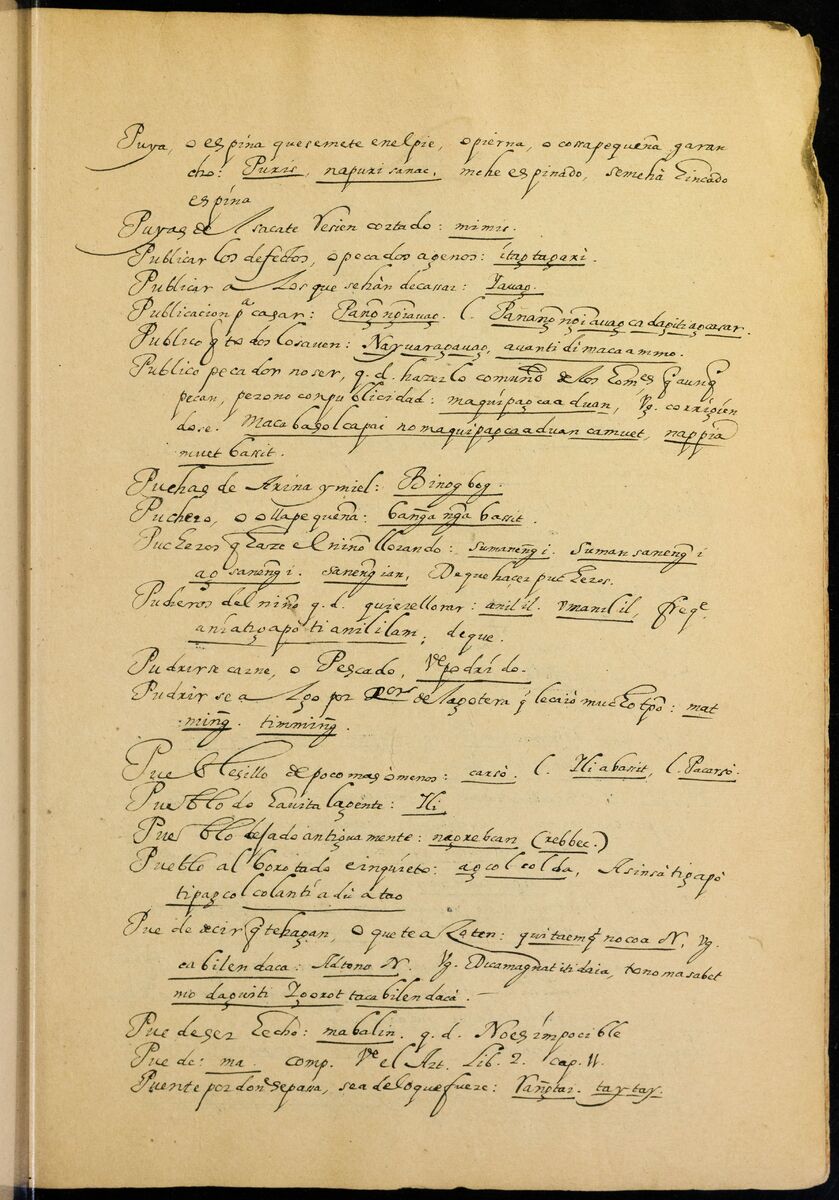 Puya, o espina quesemete enelpie, opierna, o cossapequeña garan
cho: Puris, napurisanac, mehe espinado, semeha hincado
espina
Puyas de Asacate recien cortado: mimis.
Publicar los defectos, opecados agenos: itaptapari.
Publicar a Los que sehàn decassar: Yavag.
Publicacion pª casar:
Publico q̃ todos losaven: Nayvaragavag, avantidimacaammo.
Publico pecador noser, q.d. hazerlo comuñ de los homes q̃ aunq̃
pecan, perono conpublicidad: maquipagcaaduan, Vg. corrigien
dose. Macabagolcapai nomaquipagcaaduan camuet, nappia
muet bassit.
Puchas de Arina y miel: Binogbog.
Puchero, o ollapequeña: banga nga bassit.
Pucheros q̃ haze el niño llorando: sumaneñgi. Sumansaneñgi
ag saneñgi. saneñgian, De que hacer pucheros.
Pucheros del niño q.d. quierellorar: anilil. Vmanilil, freqe.
anhatigapo ti anililam; de que.
Pudrirse carne, o Pescado, Ve podrido.
Pudrir se a Lgo por de lagotera q̃ lecaió mucho tp̃o: mat
ming̃. timming̃.
Pueblesillo depocomas òmenos: carsò. l. Ili abassit, l. Pacarsò.
Pueblo do havita lagente: Ili.
Pueblo dejado antiguamente: nagrebcan (rebbec.)
Pueblo alborotado e inquieto: agcolcolda, Asinsàtigapò
tipagcolcolantí adù atao
Puede decir q̃ tehagan, o que te a Zoten: quitaemq̃ nocoa N, Vg.
cabilendaca: Adtono N. Vg. Dicamagnatitidaia, tonomasabet
mo daguiti tacabilendacà.
Puede ser hecho: mabalin. q.d. No es ímpocible
Puede: ma. comp. Ve el Art. Lib. 2. Cap. 11.
Puente por donde sepassa, sea deloquefuere: taytay.